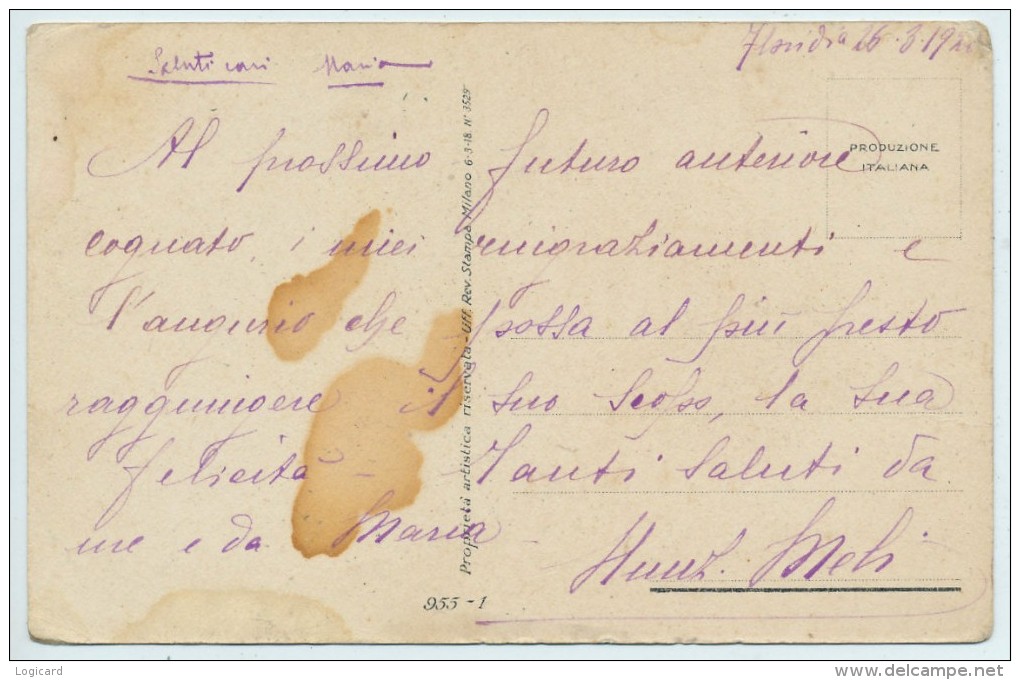 Floridia 26.3.192
Saluti cari Maria
Al prossimo futuro anteriore
cognato, i miei ringraziamenti e
l'augurio che possa al più presto
raggiungere il suo scopo, la sua
felicità - Tanti saluti da
me e da Maria -
Meli
PRODUZIONE
ITALIANA
Proprietà artistica riservata - Uff. Rev. Stampa Milano 6-3-18. N° 3529
955-1
Logicard
www.delcampe.net